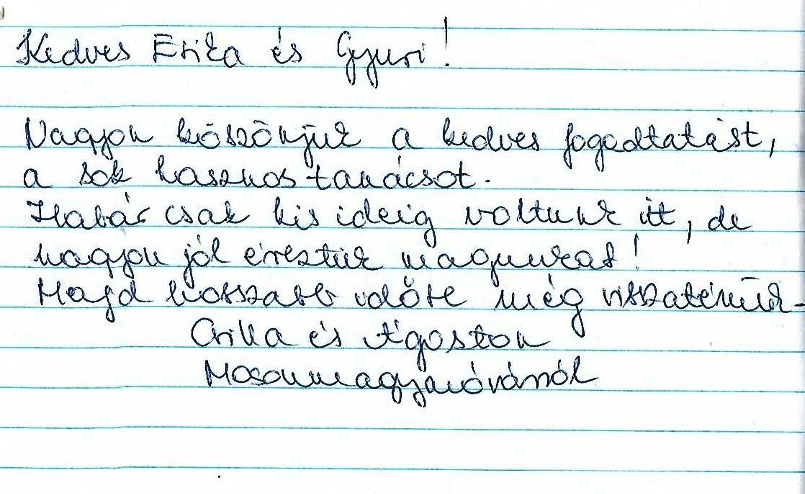 Kedves Erika és Gyuri!
Nagyon köszönjük a kedves fogadtatást,
a sok hasznos tanácsot.
Habár csak kis ideig voltunk itt, de
nagyon jól éreztük magunkat!
Majd hosszabb időre még visszatérünk.
Csilla és Ágoston
Mosonmagyaróvárról